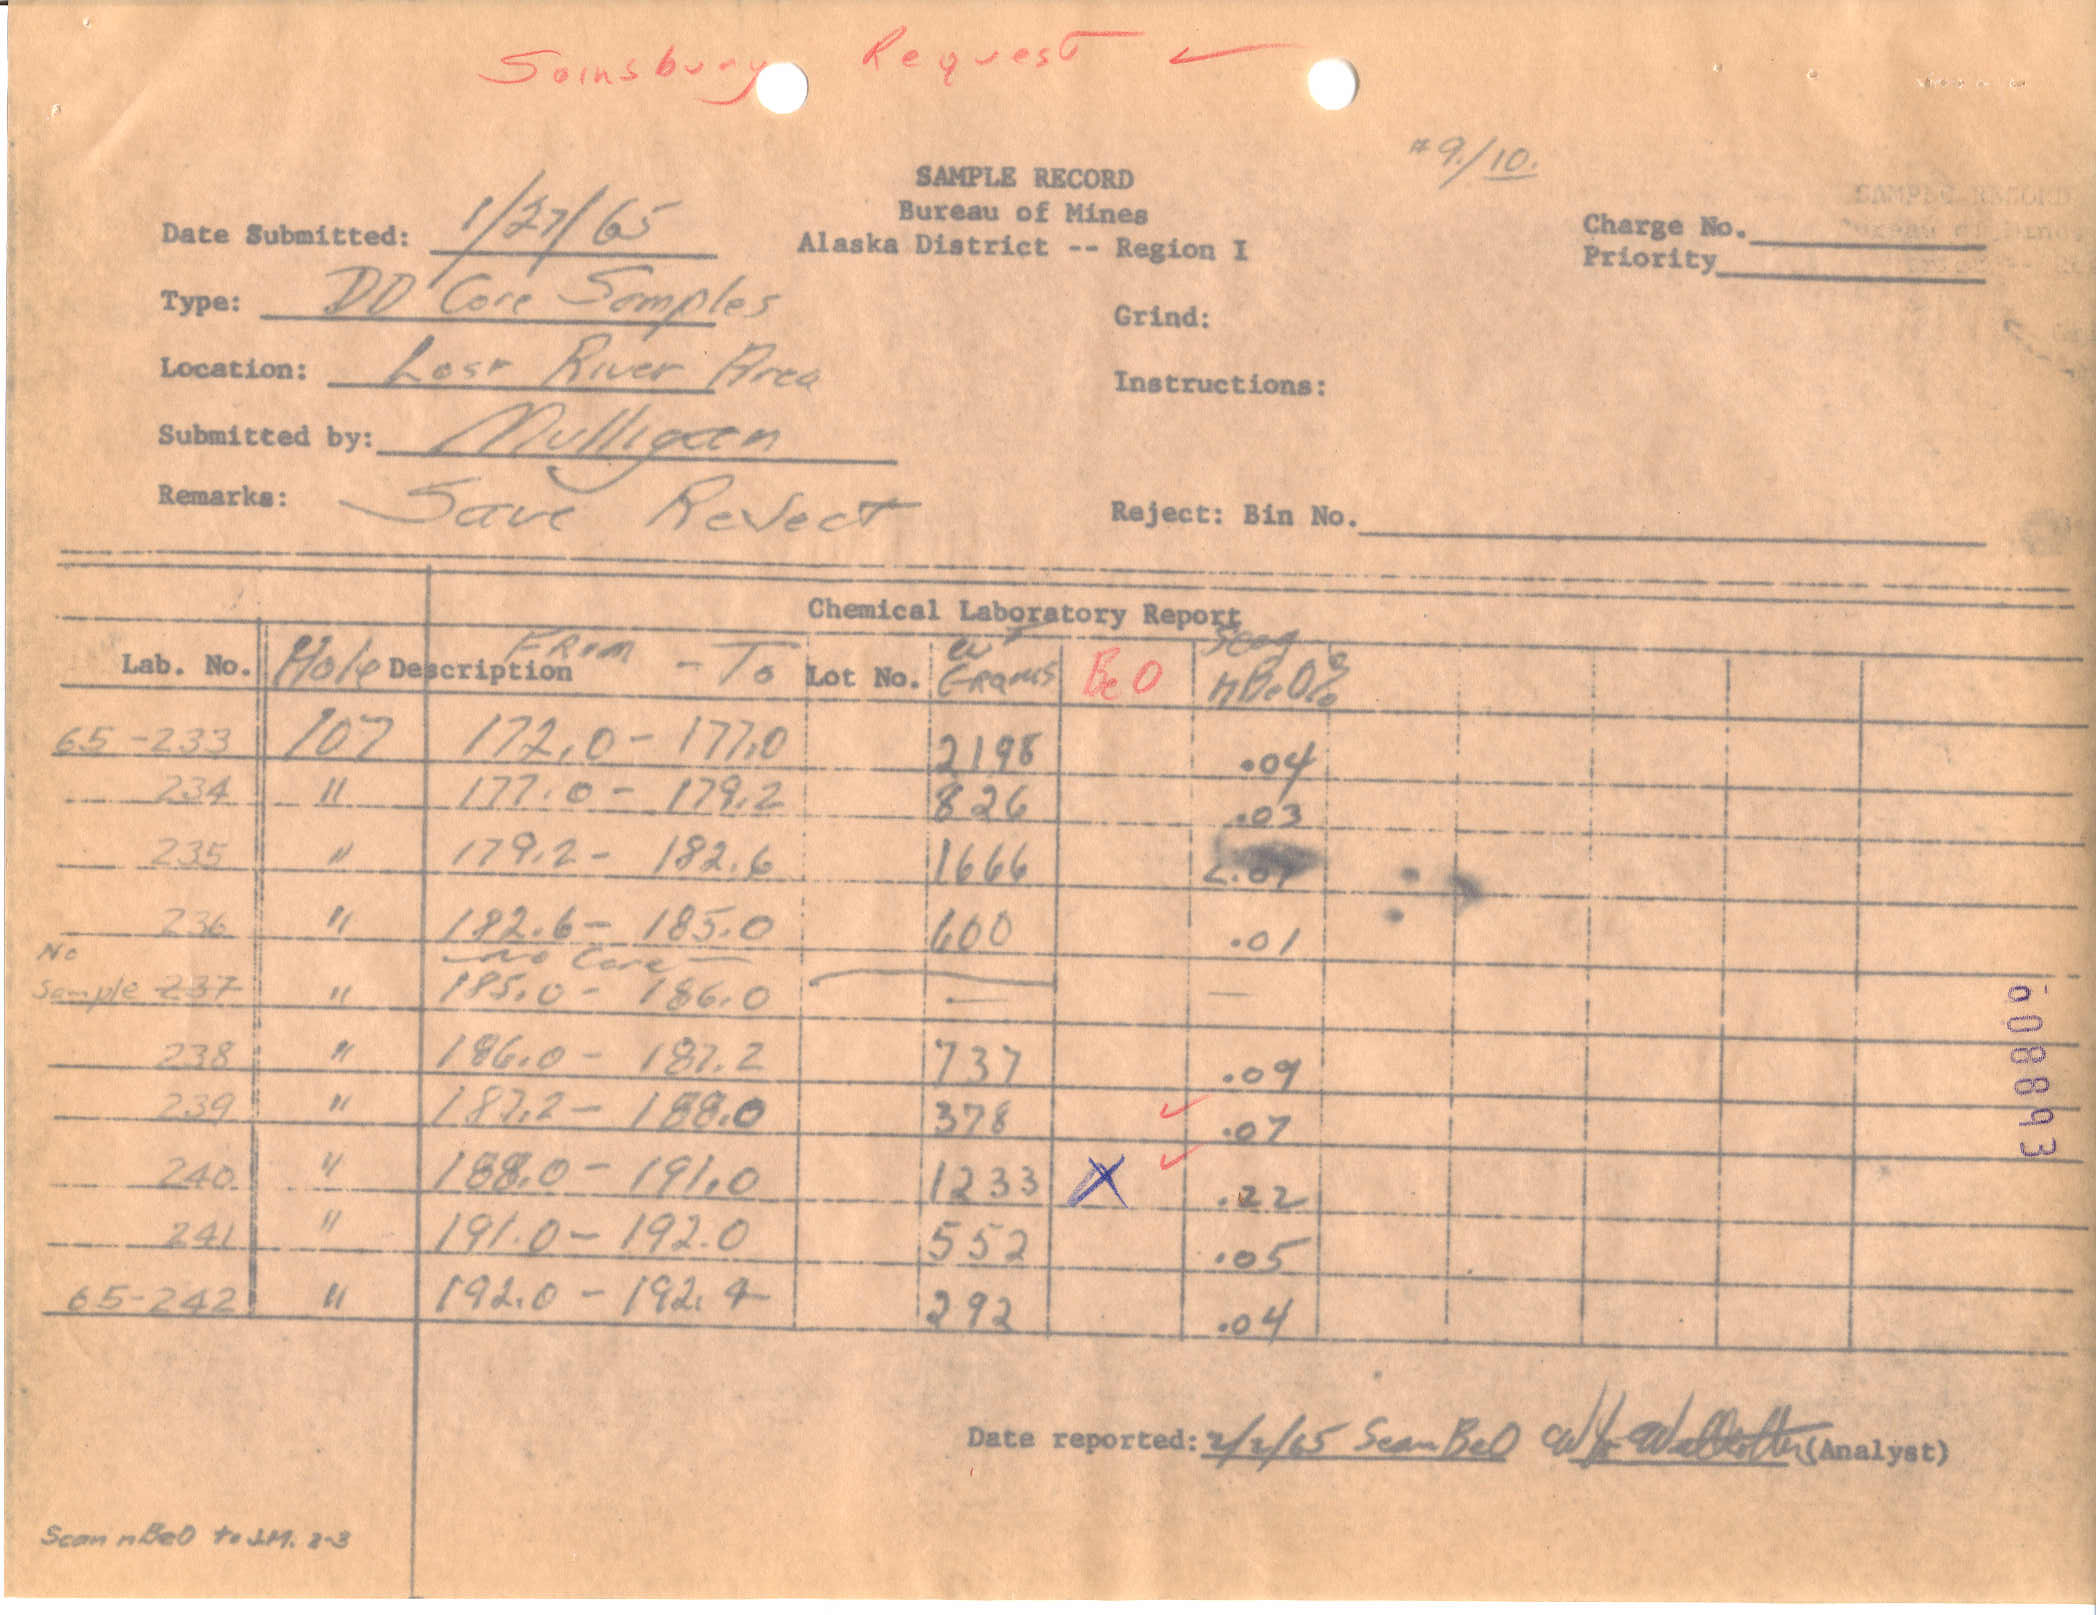 Sainsbury Request ✓
#9./10.
SAMPLE RECORD
Bureau of Mines
Alaska District -- Region I
Date Submitted: 1/27/65
Charge No.
Priority
Type: DD Core Samples
Grind:
Location: Lost River Area
Instructions:
Submitted by: Mulligan
Remarks: Save Reject
Reject: Bin No.
Chemical Laboratory Report
Lab. No. Hole Description From - To Lot No. WT Grams BeO Scan nBeO%
65-233 107 172.0 - 177.0 2198 .04
234 " 177.0 - 179.2 826 .03
235 " 179.2 - 182.6 1666
236 " 182.6 - 185.0 600 .01
No Sample 237 " — no Core — 185.0 - 186.0 — —
238 " 186.0 - 187.2 737 .09
239 " 187.2 - 188.0 378 ✓ .07
240 " 188.0 - 191.0 1233 X ✓ .22
241 " 191.0 - 192.0 552 .05
65-242 " 192.0 - 192.4 292 .04
608893
Date reported: 2/2/65 Scan BeO (Analyst)
Scan nBeO to J.M. 2-3